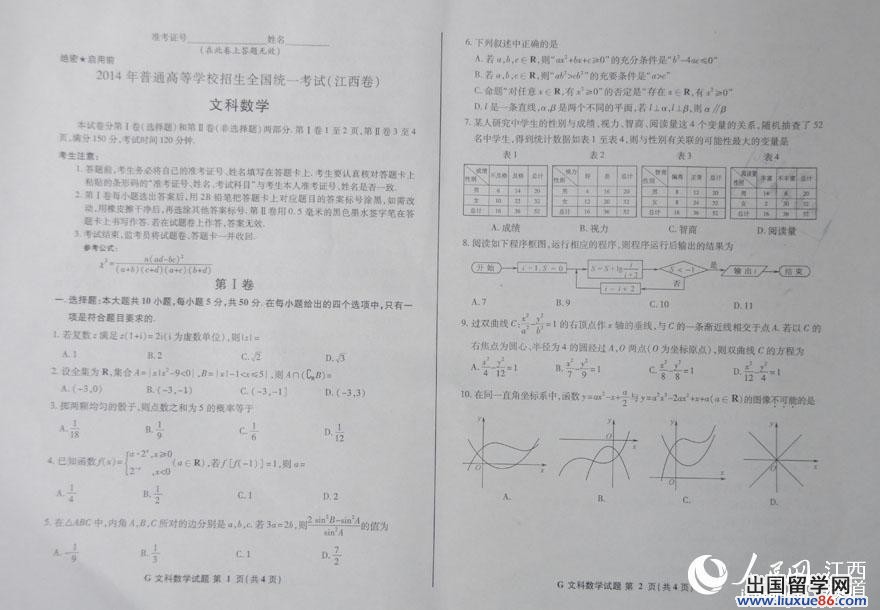 准考证号 姓名
(在此卷上答题无效)
绝密★启用前
2014 年普通高等学校招生全国统一考试(江西卷)
文科数学
本试卷分第Ⅰ卷(选择题)和第Ⅱ卷(非选择题)两部分.第Ⅰ卷 1 至 2 页,第Ⅱ卷 3 至 4
页,满分 150 分,考试时间 120 分钟.
考生注意:
1. 答题前,考生务必将自己的准考证号、姓名填写在答题卡上.考生要认真核对答题卡上
粘贴的条形码的“准考证号、姓名、考试科目”与考生本人准考证号、姓名是否一致.
2. 第Ⅰ卷每小题选出答案后,用 2B 铅笔把答题卡上对应题目的答案标号涂黑,如需改
动,用橡皮擦干净后,再选涂其他答案标号.第Ⅱ卷用 0.5 毫米的黑色墨水签字笔在答
题卡上书写作答.若在试题卷上作答,答案无效.
3. 考试结束,监考员将试题卷、答题卡一并收回.
参考公式:
χ²=n(ad-bc)²/((a+b)(c+d)(a+c)(b+d))
第Ⅰ卷
一. 选择题:本大题共 10 小题,每小题 5 分,共 50 分.在每小题给出的四个选项中,只有一
项是符合题目要求的.
1. 若复数 z 满足 z(1+i)=2i(i 为虚数单位),则|z|=
A. 1 B. 2 C. √2 D. √3
2. 设全集为 R,集合 A={x|x²-9<0},B={x|-1<x≤5},则 A∩(∁RB)=
A. (-3,0) B. (-3,-1) C. (-3,-1] D. (-3,3)
3. 掷两颗均匀的骰子,则点数之和为 5 的概率等于
A. 1/18 B. 1/9 C. 1/6 D. 1/12
4. 已知函数 f(x)={a·2ˣ,x≥0
2⁻ˣ,x<0 (a∈R),若 f[f(-1)]=1,则 a=
A. 1/4 B. 1/2 C. 1 D. 2
5. 在△ABC 中,内角 A,B,C 所对的边分别是 a,b,c.若 3a=2b,则(2sin²B-sin²A)/sin²A的值为
A. -1/9 B. 1/3 C. 1 D. 7/2
G 文科数学试题 第 1 页(共 4 页)
6. 下列叙述中正确的是
A. 若 a,b,c∈R,则“ax²+bx+c≥0”的充分条件是“b²-4ac≤0”
B. 若 a,b,c∈R,则“ab²>cb²”的充要条件是“a>c”
C. 命题“对任意 x∈R,有 x²≥0”的否定是“存在 x∈R,有 x²≥0”
D. l 是一条直线,α,β 是两个不同的平面,若 l⊥α,l⊥β,则 α∥β
7. 某人研究中学生的性别与成绩、视力、智商、阅读量这 4 个变量的关系,随机抽查了 52
名中学生,得到统计数据如表 1 至表 4,则与性别有关联的可能性最大的变量是
表1 表2 表3 表4
成绩 性别 不及格 及格 总计
男 6 14 20
女 10 22 32
总计 16 36 52
视力 性别 好 差 总计
男 4 16 20
女 12 20 32
总计 16 36 52
智商 性别 偏高 正常 总计
男 8 12 20
女 8 24 32
总计 16 36 52
阅读量 性别 丰富 不丰富 总计
男 14 6 20
女 2 30 32
总计 16 36 52
A. 成绩 B. 视力 C. 智商 D. 阅读量
8. 阅读如下程序框图,运行相应的程序,则程序运行后输出的结果为
开始 i=1,S=0 S=S+lg i/(i+2) S<-1 是 输出 i 结束
否
i=i+2
A. 7 B. 9 C. 10 D. 11
9. 过双曲线 C:x²/a²-y²/b²=1 的右顶点作 x 轴的垂线,与 C 的一条渐近线相交于点 A.若以 C 的
右焦点为圆心、半径为 4 的圆经过 A,O 两点(O 为坐标原点),则双曲线 C 的方程为
A. x²/4-y²/12=1 B. x²/7-y²/9=1 C. x²/8-y²/8=1 D. x²/12-y²/4=1
10. 在同一直角坐标系中,函数 y=ax²-x+a/2 与 y=a²x³-2ax²+x+a(a∈R)的图像不可能的是
y y y y
O x O x O x O x
A. B. C. D.
G 文科数学试题 第 2 页(共 4 页)
人民网 江西
出国留学网
www.liuxue86.com